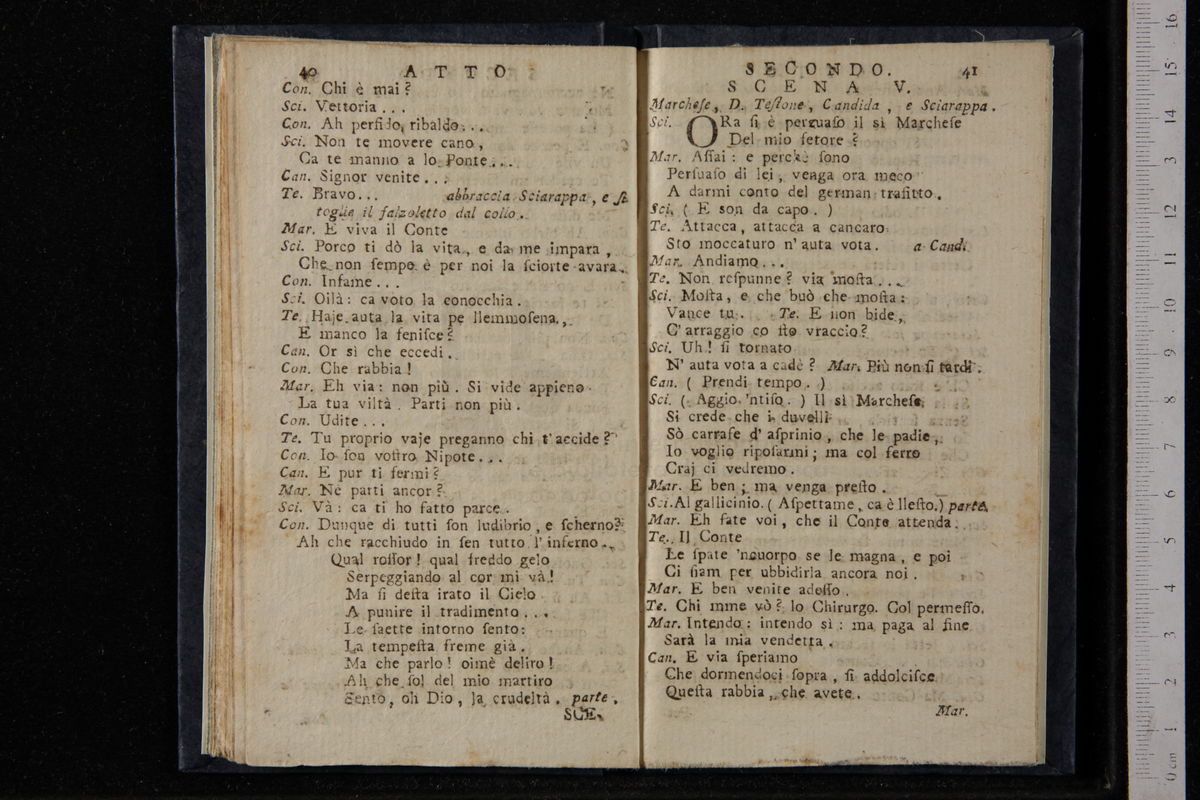 40 ATTO
Con. Chi è mai?
Sci. Vettoria...
Con. Ah perfido, ribaldo...
Sci. Non te movere cano,
Ca te manno a lo Ponte...
Can. Signor venite...
Te. Bravo... abbraccia Sciarappa, e ſi
toglie il falzoletto dal collo.
Mar. E viva il Conte
Sci. Porco ti dò la vita, e da me impara,
Che non ſempo è per noi la ſciorte avara.
Con. Infame...
Sci. Oilà: ca voto la conocchia.
Te. Haje auta la vita pe llemmoſena,
E manco la feniſce?
Can. Or sì che eccedi.
Con. Che rabbia!
Mar. Eh via: non più. Si vide appieno
La tua viltà. Parti non più.
Con. Udite...
Te. Tu proprio vaje preganno chi t'accide?
Con. Io ſon voſtro Nipote...
Can. E pur ti fermi?
Mar. Nè parti ancor?
Sci. Và: ca ti ho fatto parce.
Con. Dunque di tutti ſon ludibrio, e ſcherno?
Ah che racchiudo in ſen tutto l'inferno.
Qual roſſor! qual freddo gelo
Serpeggiando al cor mi và!
Ma ſi deſta irato il Cielo
A punire il tradimento...
Le ſaette intorno ſento:
La tempeſta freme già.
Ma che parlo! oimè deliro!
Ah che ſol del mio martiro
Sento, oh Dio, la crudeltà. parte.
SCE-
SECONDO. 41
SCENA V.
Marcheſe, D. Teſtone, Candida, e Sciarappa.
Sci. ORa ſi è perzuaſo il sì Marcheſe
Del mio fetore?
Mar. Aſſai: e perchè ſono
Perſuaſo di lei, venga ora meco
A darmi conto del german trafitto.
Sci. (E son da capo.)
Te. Attacca, attacca a cancaro
Sto moccaturo n'auta vota. a Cand.
Mar. Andiamo...
Te. Non reſpunne? via moſta...
Sci. Moſta, e che buò che moſta:
Vance tu. Te. E non bide,
C'arraggio co ſto vraccio?
Sci. Uh! ſi tornato
N'auta vota a cadè? Mar. Più non ſi tardi.
Can. (Prendi tempo.)
Sci. (Aggio 'ntiſo.) Il sì Marcheſe,
Si crede che i duvelli
Sò carrafe d'aſprinio, che le padie,
Io voglio ripoſarmi; ma col ferro
Craj ci vedremo.
Mar. E ben; ma venga preſto.
Sci. Al gallicinio. (Aſpettame, ca è lleſto.) parte.
Mar. Eh fate voi, che il Conte attenda.
Te. Il Conte
Le ſpate 'ncuorpo se le magna, e poi
Ci ſiam per ubbidirla ancora noi.
Mar. E ben venite adeſſo.
Te. Chi mme vò? lo Chirurgo. Col permeſſo.
Mar. Intendo: intendo sì: ma paga al fine
Sarà la mia vendetta.
Can. E via ſperiamo
Che dormendoci ſopra, ſi addolciſce
Queſta rabbia, che avete.
Mar.
0 cm 1 2 3 4 5 6 7 8 9 10 11 12 13 14 15 16